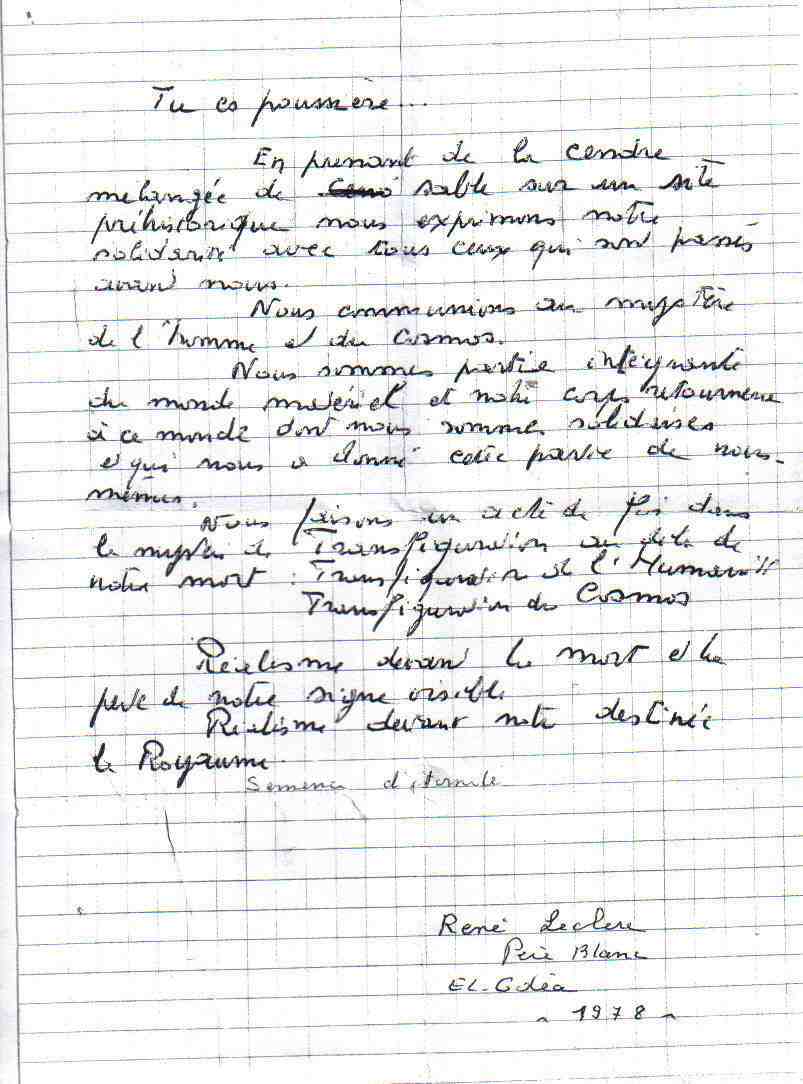 Tu es poussière...
En prenant de la cendre
melangée de sable sur un site
préhistorique nous exprimons notre
solidarité avec tous ceux qui sont passés
avant nous.
Nous communions au mystère
de l'homme et du Cosmos.
Nous sommes partie intégrante
du monde matériel et notre corps retournera
à ce monde dont nous sommes solidaires
et qui nous a donné cette partie de nous-
mêmes.
Nous faisons un acte de foi dans
le mystère de Transfiguration au delà de
notre mort : Transfiguration de l'Humanité
Transfiguration du Cosmos
Réalisme devant la mort et la
perte de notre signe visible
Réalisme devant notre destinée
le Royaume.
Semence d'éternité
René Leclerc
Père Blanc
EL-Goléa
~ 1978 ~